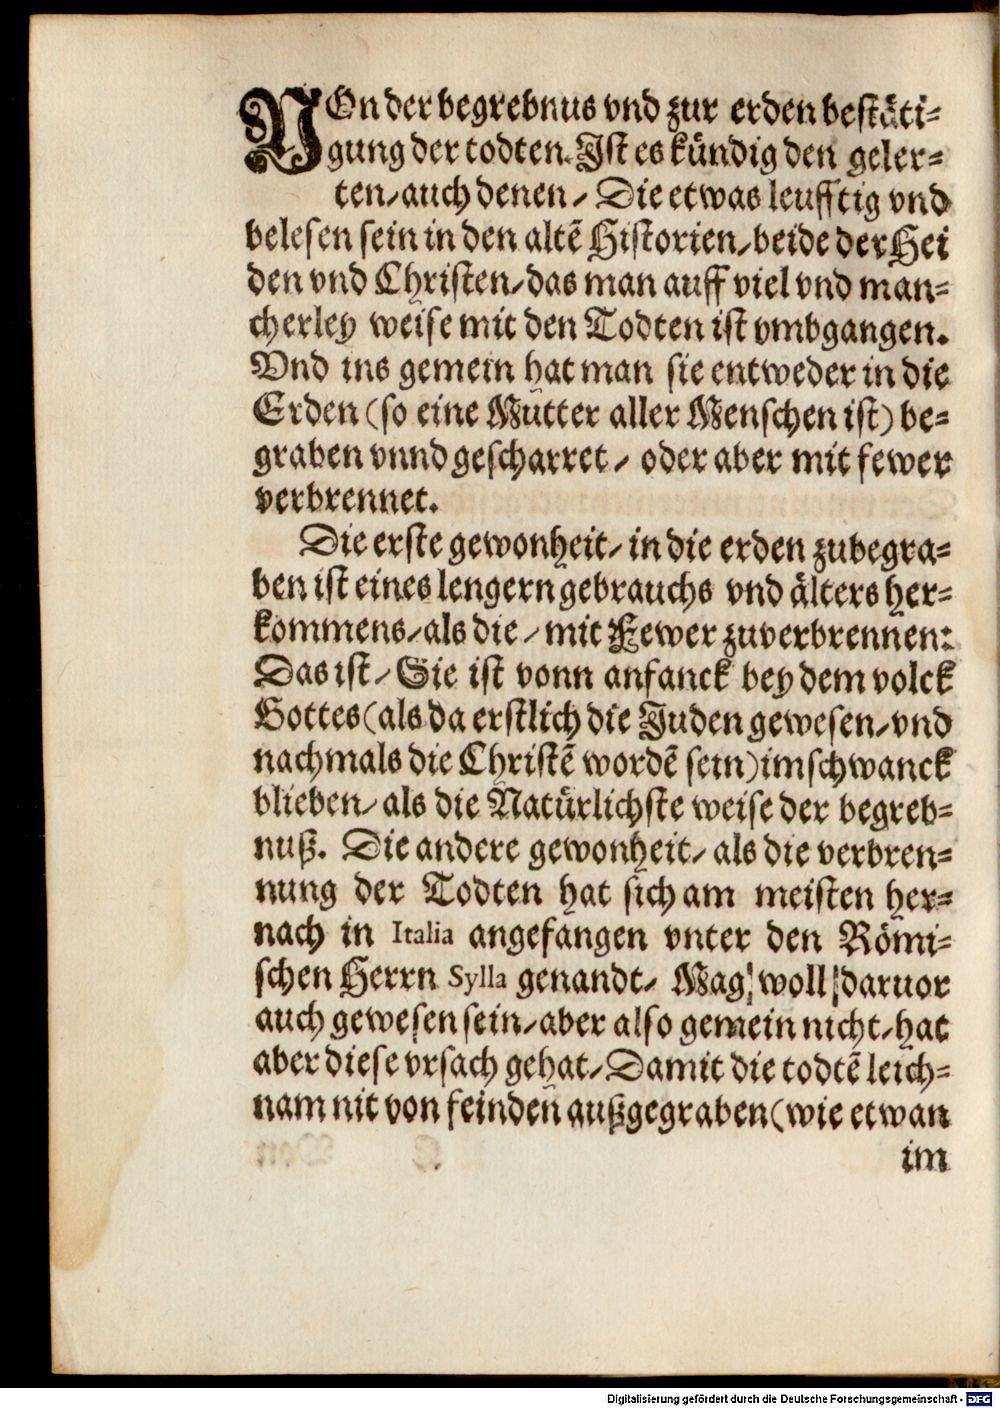 VOn der begrebnus vnd zur erden bestäti-
gung der todten. Ist es kündig den geler-
ten/ auch denen/ Die etwas leufftig vnd
belesen sein in den altē Historien/ beide der Hei
den vnd Christen/ das man auff viel vnd man-
cherley weise mit den Todten ist vmbgangen.
Vnd ins gemein hat man sie entweder in die
Erden (so eine Mutter aller Menschen ist) be-
graben vnnd gescharret/ oder aber mit fewer
verbrennet.
Die erste gewonheit/ in die erden zubegra-
ben ist eines lengern gebrauchs vnd älters her-
kommens/ als die/ mit Fewer zuverbrennen:
Das ist/ Sie ist vonn anfanck bey dem volck
Gottes (als da erstlich die Juden gewesen/ vnd
nachmals die Christē wordē sein) im schwanck
blieben/ als die Natürlichste weise der begreb-
nuß. Die andere gewonheit/ als die verbren-
nung der Todten hat sich am meisten her-
nach in Italia angefangen vnter den Römi-
schen Herrn Sylla genandt/ Mag woll daruor
auch gewesen sein/ aber also gemein nicht/ hat
aber diese vrsach gehat/ Damit die todtē leich-
nam nit von feinden außgegraben (wie etwan
im
Digitalisierung gefördert durch die Deutsche Forschungsgemeinschaft - DFG